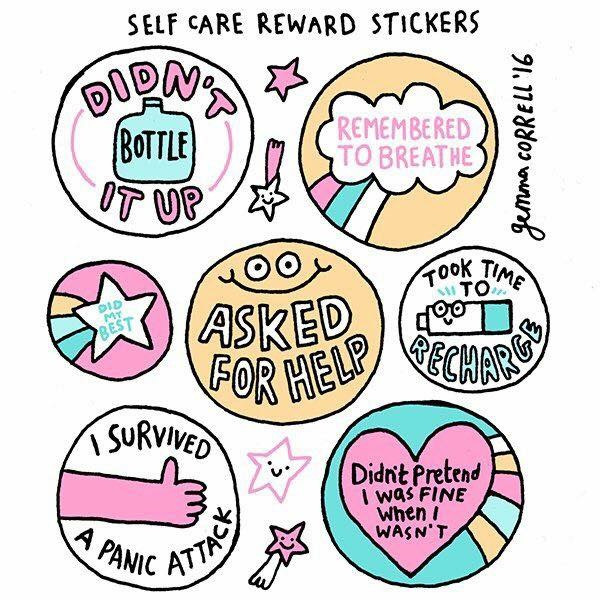 SELF CARE REWARD STICKERS
DIDN'T
BOTTLE
IT UP
REMEMBERED
TO BREATHE
gemma CORRELL '16
DID
MY
BEST
ASKED
FOR HELP
TOOK TIME
TO
RECHARGE
I SURVIVED
A PANIC ATTACK
Didn't Pretend
I was FINE
When I
WASN'T